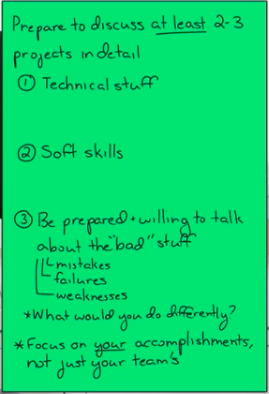 Prepare to discuss at least 2-3
projects in detail
① Technical stuff
② Soft skills
③ Be prepared + willing to talk
about the "bad" stuff
mistakes
failures
weaknesses
*What would you do differently?
*Focus on your accomplishments,
not just your team's